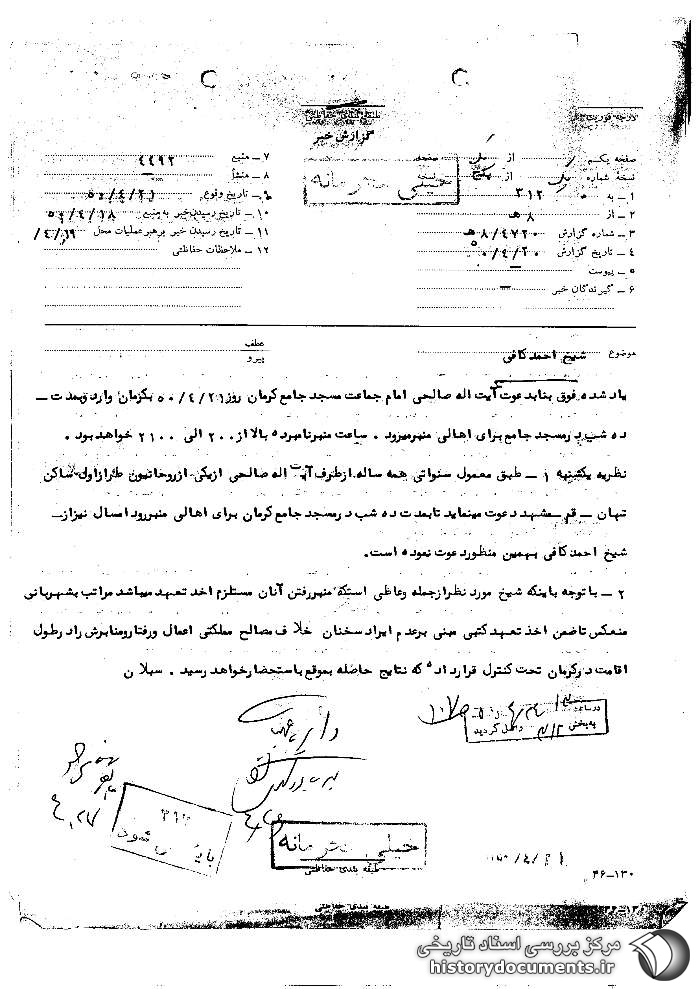 طبقه بندی حفاظتی
گزارش خبر
درجه فوریت
صفحه یکم از یک صفحه
نسخه شماره یک از پنج نسخه
۱ ـ به ۳۱۲
۲ ـ از ۸ هـ
۳ ـ شماره گزارش ۸/۴۷۲۰ هـ
۴ ـ تاریخ گزارش ۵۰/۴/۲۰
۵ ـ پیوست
۶ ـ گیرندگان خبر
خیلی محرمانه
۷ ـ منبع ۴۴۹۲
۸ ـ منشأ
۹ ـ تاریخ وقوع ۵۰/۴/۲۱
۱۰ ـ تاریخ رسیدن خبر به منبع ۵۰/۴/۱۸
۱۱ ـ تاریخ رسیدن خبر برهبر عملیات محل /۴/۱۹
۱۲ ـ ملاحظات حفاظتی
موضوع شیخ احمد کافی
عطف
پیرو
یاد شده فوق بنابدعوت آیت اله صالحی امام جماعت مسجد جامع کرمان روز ۵۰/۴/۲۱ بکرمان وارد وبمدت ـ
ده شب در مسجد جامع برای اهالی منبر میرود . ساعت منبر نامبرده بالا از ۲۰۰۰ الی ۲۱۰۰ خواهد بود .
نظریه یکشنبه ۱ ـ طبق معمول سنواتی همه ساله از طرف آیت اله صالحی از یکی از روحانیون طراز اول ساکن
تهران ـ قم ـ مشهد دعوت مینماید تا بمدت ده شب در مسجد جامع کرمان برای اهالی منبر رود امسال نیز از ـ
شیخ احمد کافی بهمین منظور دعوت نموده است.
۲ ـ با توجه باینکه شیخ مورد نظر از جمله وعاظی استکه منبر رفتن آنان مستلزم اخذ تعهد میباشد مراتب بشهربانی
منعکس تا ضمن اخذ تعهد کتبی مبنی برعدم ایراد سخنان خلاف مصالح مملکتی اعمال و رفتار و منابرش را در طول
اقامت در کرمان تحت کنترل قرار داده که نتایج حاصله بموقع باستحضار خواهد رسید . سبلان
در ساعت
به بخش ۳۱۲ داخل گردید
۴/۲۷
۳۱۲
بایگانی شود
خیلی محرمانه
طبقه بندی حفاظتی
۴۶-۱۳۰
طبقه بندی حفاظتی
مرکز بررسی اسناد تاریخی
historydocuments.ir